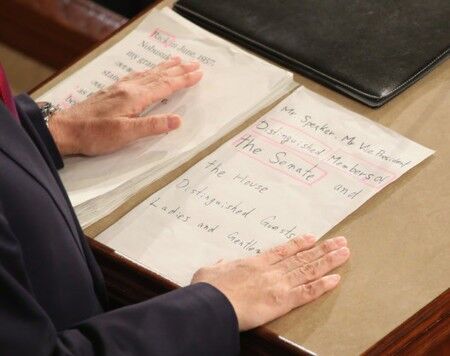 Back in June, 1957,
Nobusuke
my gran
standi
as
beg
Mr. Speaker, Mr. Vice President
Distinguished Members of
the Senate and
the House
Distinguished Guests
Ladies and Gentlem